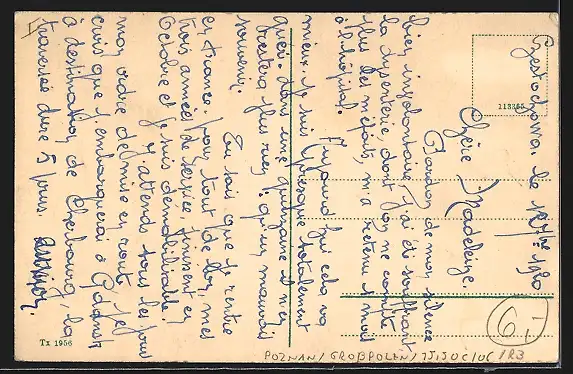 Czestochowa le 12 7bre 1920
Chère Madeleine
Pardon de mon silence
bien involontaire, j'ai été souffrant
la dysenterie dont on ne compte
plus les méfaits, m'a retenu 1 mois
à l'hôpital.
Aujourd'hui cela va
mieux. Je suis presque totalement
guéri, dans une quinzaine il n'en
restera plus rien, qu'un mauvais
souvenir.
Tu sais que je rentre
en France. pour tout de bon, mes
trois années de service finissent en
Octobre et je suis démobilisable.
J'attends tous les jours
mon ordre de mise en route pr
que j'embarquerai à Gdansk
à destination de Cherbourg, la
traversée dure 5 jours.
113365
Tx 1956
6,-
POZNAN / GROßPOLEN /